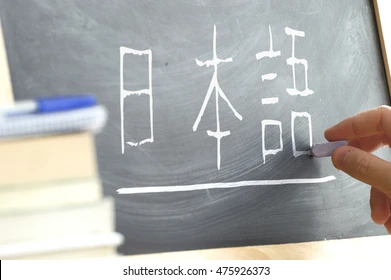 日本語
shutterstock.com · 475926373